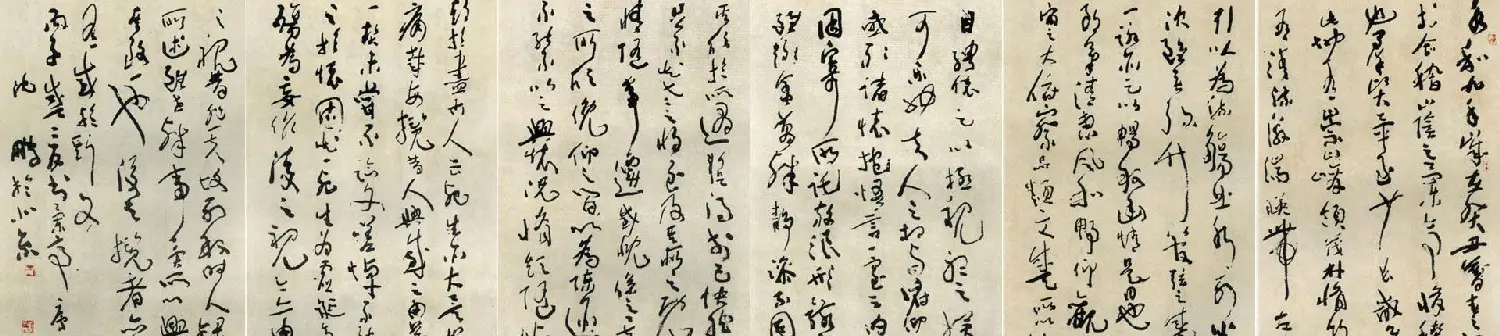 永和九年歲在癸丑暮春之
於會稽山陰之蘭亭脩禊
也群賢畢至少長咸
此地有崇山峻領茂林脩竹
有清流激湍映帶左
引以為流觴曲水列坐
次雖無絲竹管弦之盛
一詠亦足以暢敘幽情是日也
朗氣清惠風和暢仰觀
宙之大俯察品類之盛所以
目騁懷足以極視聽之娛
可樂也夫人之相與俯仰
或取諸懷抱悟言一室之內
因寄所託放浪形骸
雖趣舍萬殊靜躁不同
其欣於所遇暫得於己快然
足不知老之將至及其所之既
情隨事遷感慨係之
之所欣俛仰之間以為陳迹
不能不以之興懷況脩短隨
期於盡古人云死生亦大矣
痛哉每攬昔人興感之由若
一契未嘗不臨文嗟悼不能
之於懷固知一死生為虛誕
殤為妄作後之視今亦由
之視昔悲夫故列敘時人錄
所述雖世殊事異所以興
其致一也後之攬者亦
有感於斯文
丙子盛夏書蘭亭序
沈鵬於北京